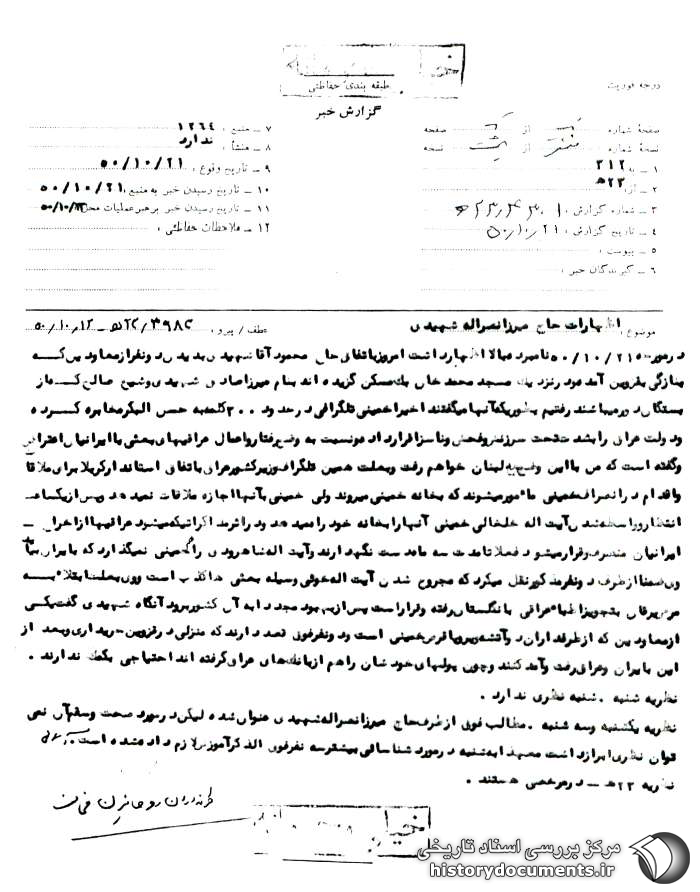 خیلی محرمانه
درجه فوریت
طبقه بندی حفاظتی
گزارش خبر
صفحهٔ شماره از صفحه
نسخهٔ شماره از نسخه
۱ – به ۳۱۲
۲ – از ۲۳ ه‍
۳ – شماره گزارش
۴ – تاریخ گزارش ۵۰/۱۰/۲۱
۵ – پیوست
۶ – گیرندگان خبر
۷ – منبع ۱۲۶۴
۸ – منشأ ندارد
۹ – تاریخ وقوع ۵۰/۱۰/۲۱
۱۰ – تاریخ رسیدن خبر به منبع ۵۰/۱۰/۲۱
۱۱ – تاریخ رسیدن خبر برهبر عملیات
۱۲ – ملاحظات حفاظتی
موضوع اظهارات حاج میرزا نصراله شهیدی
عطف / پیرو
در مورخه ۵۰/۱۰/۲۱ نامبرده بالا اظهار داشت امروز باتفاق حاج محمود آقا شهیدی بدیدن دو نفر از معاودین که
بتازگی بقزوین آمده و در نزدیک مسجد محمد خان بیک مسکن گزیده اند بنام میرزا صادق شهیدی و شیخ صالح که از
بستگان دور میباشند رفتیم بطوریکه آنها میگفتند اخیرا خمینی تلگرافی در حدود ۲۰۰ کلمه به حسن البکر مخابره کرده
و دولت عراق را بشدت تحت سرزنش و فحش و ناسزا قرار داده و نسبت به وضع رفتار و اعمال عراقیهای بعثی با ایرانیان اعتراض
وگفته است که من با این وضع به لبنان خواهم رفت وبعلت همین تلگراف وزیر کشور عراق باتفاق استاندار کربلا برای ملاقات
واقدام در انصراف خمینی مامور میشوند که بخانه خمینی میروند ولی خمینی بآنها اجازه ملاقات نمیدهد وپس از یکساعت
انتظار و واسطه شدن آیت اله خلخالی خمینی آنها را بخانه خود راه میدهد و در اثر مذاکراتیکه میشود عراقیها از اخراج
ایرانیان منصرف وقرار میشود فعلا تا مدت سه ماه دست نگهدارند وآیت اله شاهرودی را خمینی نمیگذارد که بایران بیاید
وضمنا از طرف دو نفر مذکور نقل میکرد که مجروح شدن آیت اله خوئی وسیله بعثی ها کذب است ووی بعلت ابتلاء به
مرض یرقان بتجویز اطباء عراقی بانگلستان رفته وقرار است پس از بهبود مجددا به آن کشور برود آنگاه شهیدی گفت یکی
از معاودین که از طرفداران دو آتشه وپروپا قرص خمینی است و دو نفر فوق قصد دارند که منزلی در قزوین خریداری وبعد از
این بایران وعراق رفت وآمد کنند وچون پولهای خودشان را هم از بانکهای عراق گرفته اند احتیاجی بکمک ندارند .
نظریه شنبه . شنبه نظری ندارد .
نظریه یکشنبه وسه شنبه . مطالب فوق از طرف حاج میرزا نصراله شهیدی عنوان شده لیکن در مورد صحت وسقم آن نمی
توان نظری ابراز داشت معهذا به شنبه در مورد شناسائی بیشتر سه نفر فوق الذکر آموزش لازم داده شده است
نظریه ۲۳ ه‍ – در مرخصی هستند .
خیلی محرمانه
مرکز بررسی اسناد تاریخی
historydocuments.ir